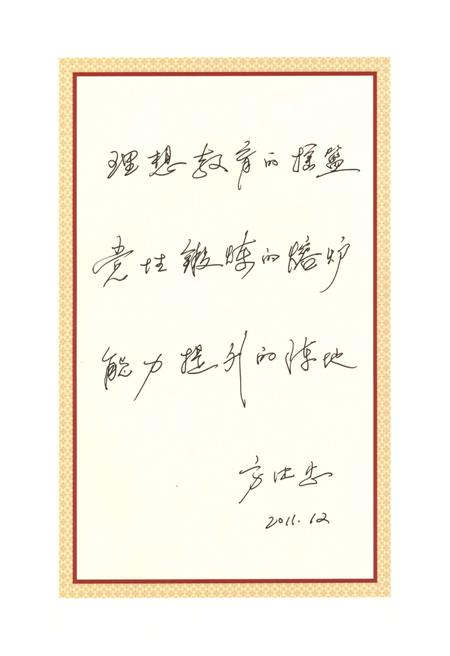 理想教育的摇篮
党性锻炼的熔炉
能力提升的阵地
方忠
2011.12